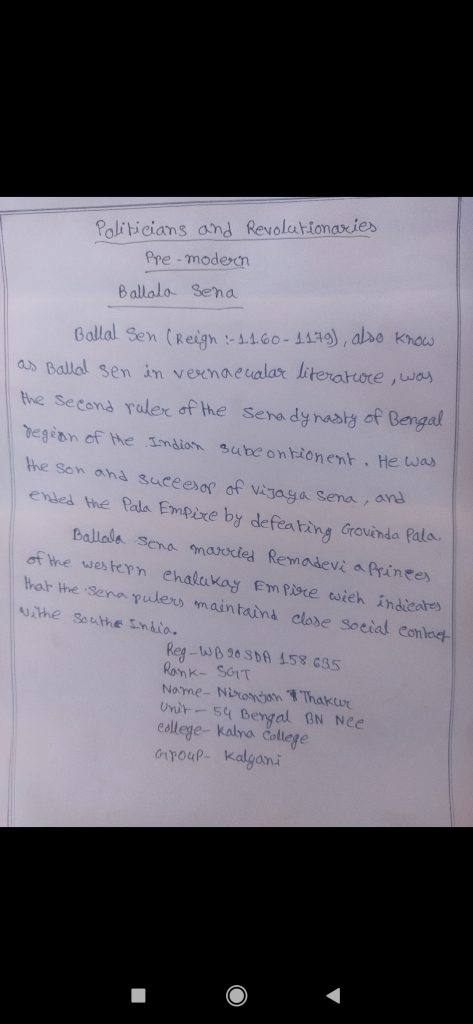 Politicians and Revolutionaries
Pre-modern
Ballala Sena
Ballal Sen (Reign :- 1160-1179), also Know
as Ballal sen in vernacualar literature, was
the second ruler of the Sena dynasty of Bengal
region of the Indian subcontionent. He was
the son and succesor of Vijaya Sena, and
ended the Pala Empire by defeating Govinda Pala.
Ballala Sena married Remadevi a Princes
of the western chalukay Empire wich indicates
that the Sena rulers maintaind close social contact
withe southe India.
Reg-WB20SDA 158635
Rank- SGT
Name- Niranjan Thakur
Unit- 54 Bengal BN NCC
college- Kalna College
Group- Kalyani